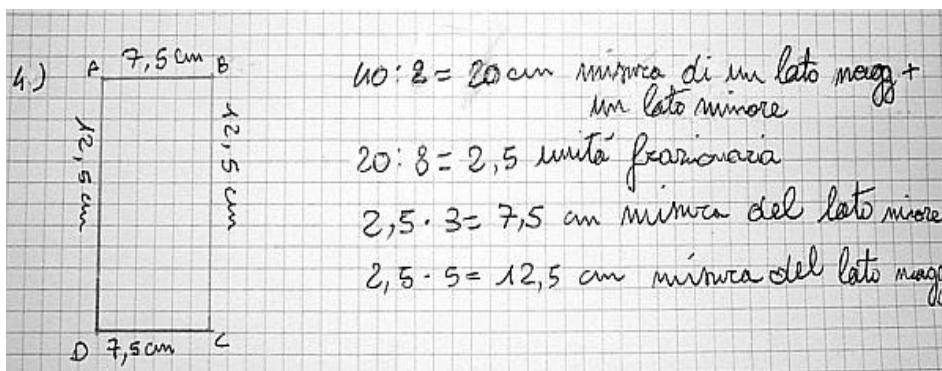 4.)
A 7,5 cm B
12,5 cm
12,5 cm
D 7,5 cm C
40:2 = 20 cm misura di un lato magg +
un lato minore
20:8 = 2,5 unità frazionaria
2,5 · 3 = 7,5 cm misura del lato minore
2,5 · 5 = 12,5 cm misura del lato magg